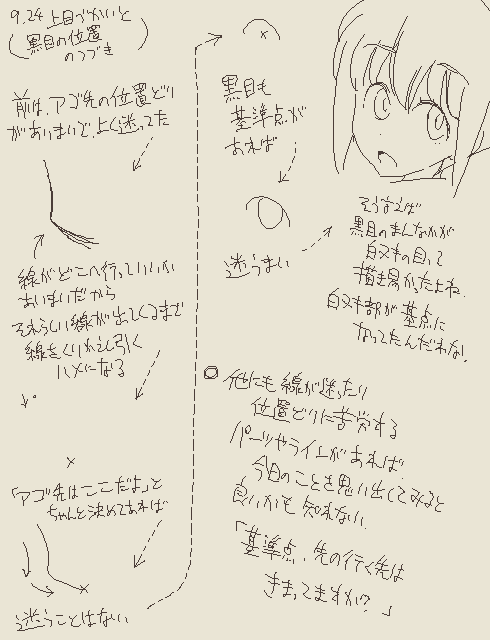 9.24 上目づかいと
(黒目の位置
のつづき)
前は、アゴ先の位置どり
があいまいで、よく迷ってた
線がどこへ行っていいか
あいまいだから
それらしい線が出てくるまで
線をくりかえし引く
ハメになる
「アゴ先はここだよ」と
ちゃんと決めてあれば
迷うことはない
黒目も
基準点が
あれば
迷うまい
そういえば
黒目のまんなかが
白ヌキの目って
描き易かったよね。
白ヌキ部が基点に
なってたんだわな!
他にも線が迷ったり
位置どりに苦労する
パーツやラインがあれば
今日のことを思い出してみると
良いかも知れない。
「基準点、先の行く先は
きまってますかい?」